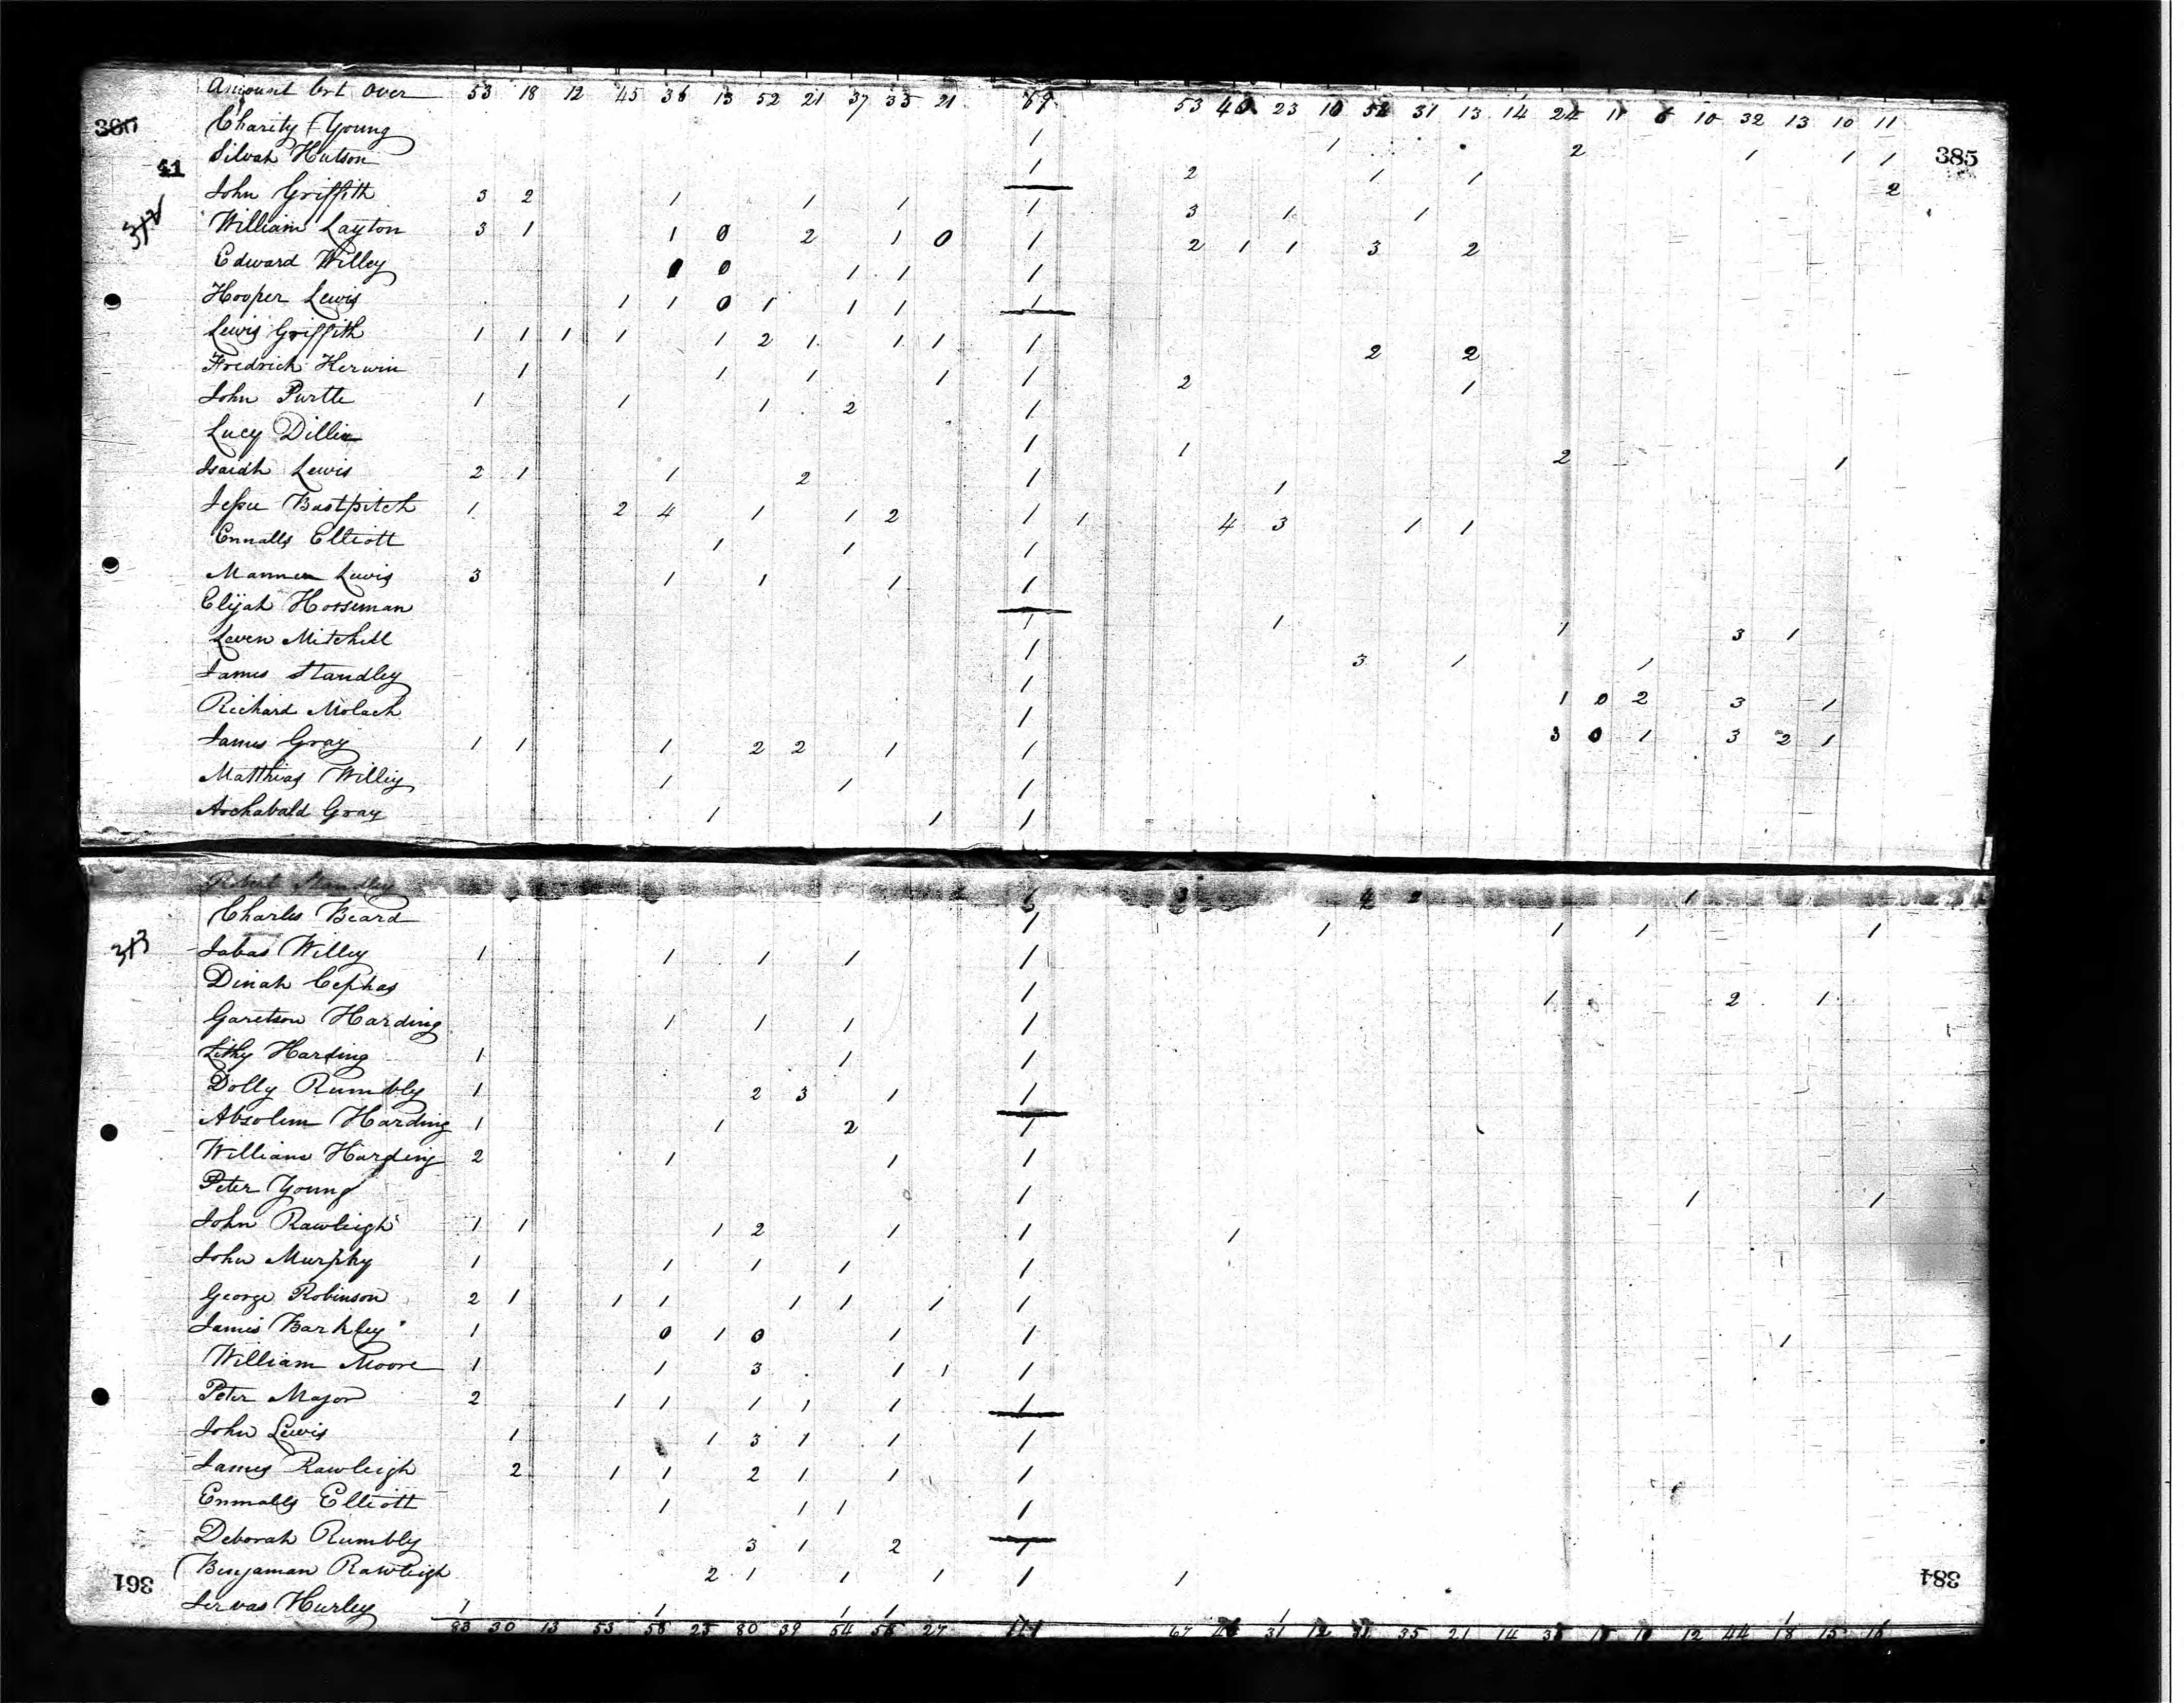 Amount brt Over 53 18 12 45 36 13 52 21 37 35 21 69 53 40 23 10 52 31 13 14 24 11 6 10 32 13 10 11
380
Charity Young 1 1 2 1 1 1
385
41
Silvah Hutson 1 2 1 1 2
John Griffith 3 2 1 1 1 1 3 1 1
William Layton 3 1 1 0 2 1 0 1 2 1 1 3 2
Edward Willey 0 0 1 1 1
Hooper Lewis 1 1 0 1 1 1 1
Lewis Griffith 1 1 1 1 1 2 1 1 1 1 2 2
Fredrick Kerwin 1 1 1 1 1 2 1
John Purtle 1 1 1 2 1
Lucy Dillin 1 1 2 1
Isaidh Lewis 2 1 1 2 1 1
Jesse Bastpitch 1 2 4 1 1 2 1 1 4 3 1 1
Ennalls Elliott 1 1 1
Mannen Lewis 3 1 1 1 1
Elijah Horseman 1 1 1 3 1
Leven Mitchell 1 3 1 1
James Standley 1 1 0 2 3 1
Richard Molack 1 3 0 1 3 2 1
James Gray 1 1 1 2 2 1 1
Matthias Willey 1 1 1
Archabald Gray 1 1 1
Robert Standley
Charles Beard 1 1 1 1 1
313
Jabas Willey 1 1 1 1 1
Dinah Cephas 1 1 2 1
Garetson Harding 1 1 1 1
Lithy Harding 1 1 1
Dolly Rumbly 1 2 3 1 1
Absolem Harding 1 1 2 1
William Harding 2 1 1 1
Peter Young 1 1 1
John Rawleigh 1 1 1 2 1 1 1
John Murphy 1 1 1 1 1
George Robinson 2 1 1 1 1 1 1 1
James Barkley 1 0 1 0 1 1 1
William Moore 1 1 3 1 1 1
Peter Major 2 1 1 1 1 1 1
John Lewis 1 1 3 1 1 1
James Rawleigh 2 1 1 2 1 1 1
Ennalls Elliott 1 1 1 1
Deborah Rumbly 3 1 2 1
Benjaman Rawleigh 2 1 1 1 1 1
361
384
Jervas Hurley 1 1 1 1 1 1
83 30 13 53 58 23 80 39 54 56 27 111 67 46 31 12 35 21 14 12 44 18 15 16